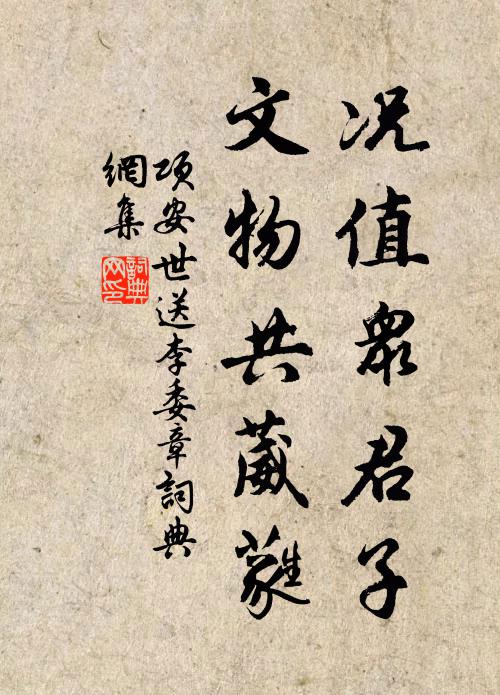 况值眾君子
文物共葳蕤
項安世送李委章詞典
網集
詞典網印